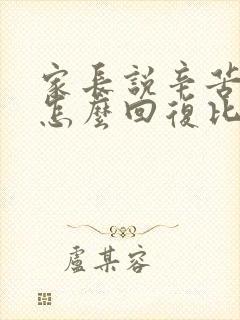 家長説辛苦
怎麼回復比
盧某容